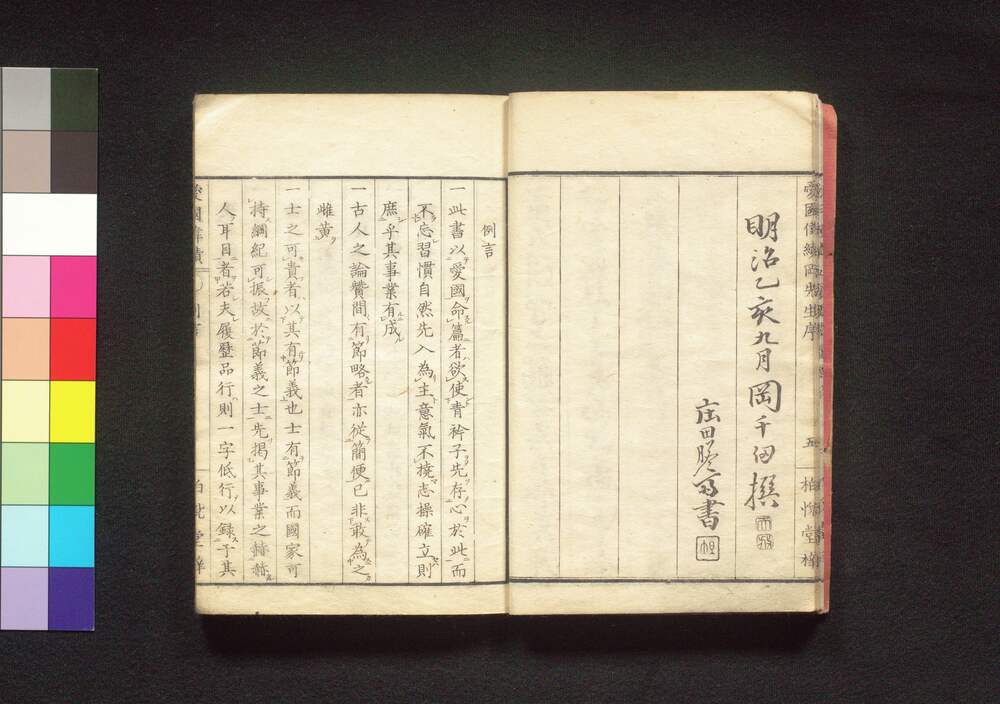 明治乙亥九月岡千仞撰
書
例言
一此書以愛國命篇者欲使青衿子先存心於此而
不忘習慣自然先入為主意氣不撓志操確立則
庶乎其事業有成
一古人之論賛間有節略者亦從簡便已非敢為之
雌黄
一士之可貴者以其有節義也士有節義而國家可
持綱紀可振故於節義之士先掲其事業之赫赫
人耳目者若夫履歴品行則一字低行以録于其